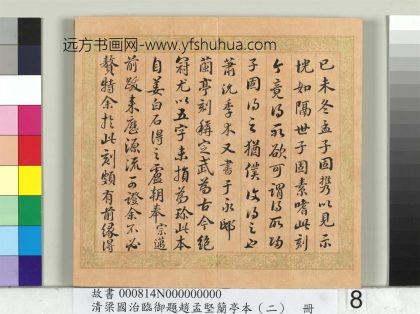 远方书画网-www.yfshuhua.com
己未冬孟子固携以見示
恍如隔世子固素嗜此刻
今竟得所欲可謂得所收
子固得之猶僕收得之也
蕭沈季木又書于永邸
蘭亭刻稱定武為古今絕
冠尤以五字未損為珍此本
自姜白石得之盧朝奉宗邁
前跋来歷源流可證余不必
贅特余於此刻頗有前緣得
故書 000814N000000000
清梁國治臨御題趙孟堅蘭亭本（二） 冊
8